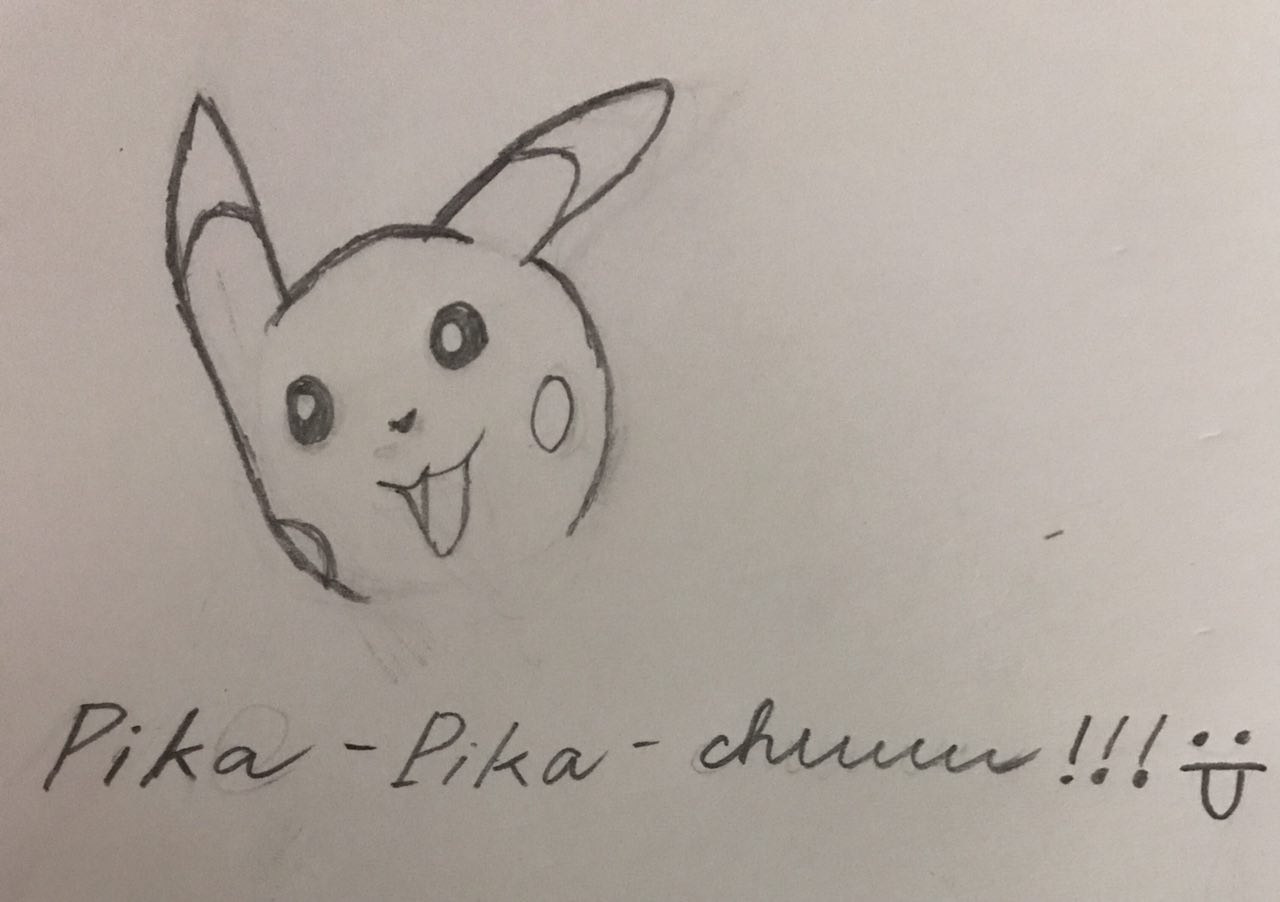 Pika - Pika - chuuuu !!!